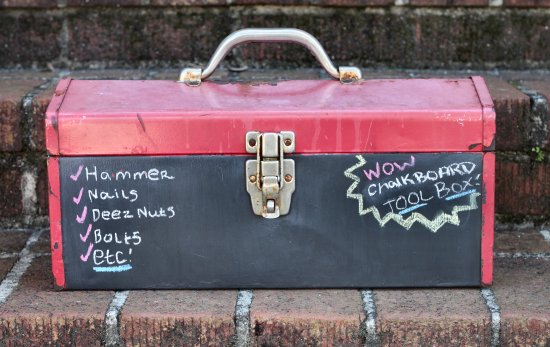 Hammer
Nails
Deez Nuts
Bolts
etc!
WOW
CHalKBOARD
TOOL BOX!